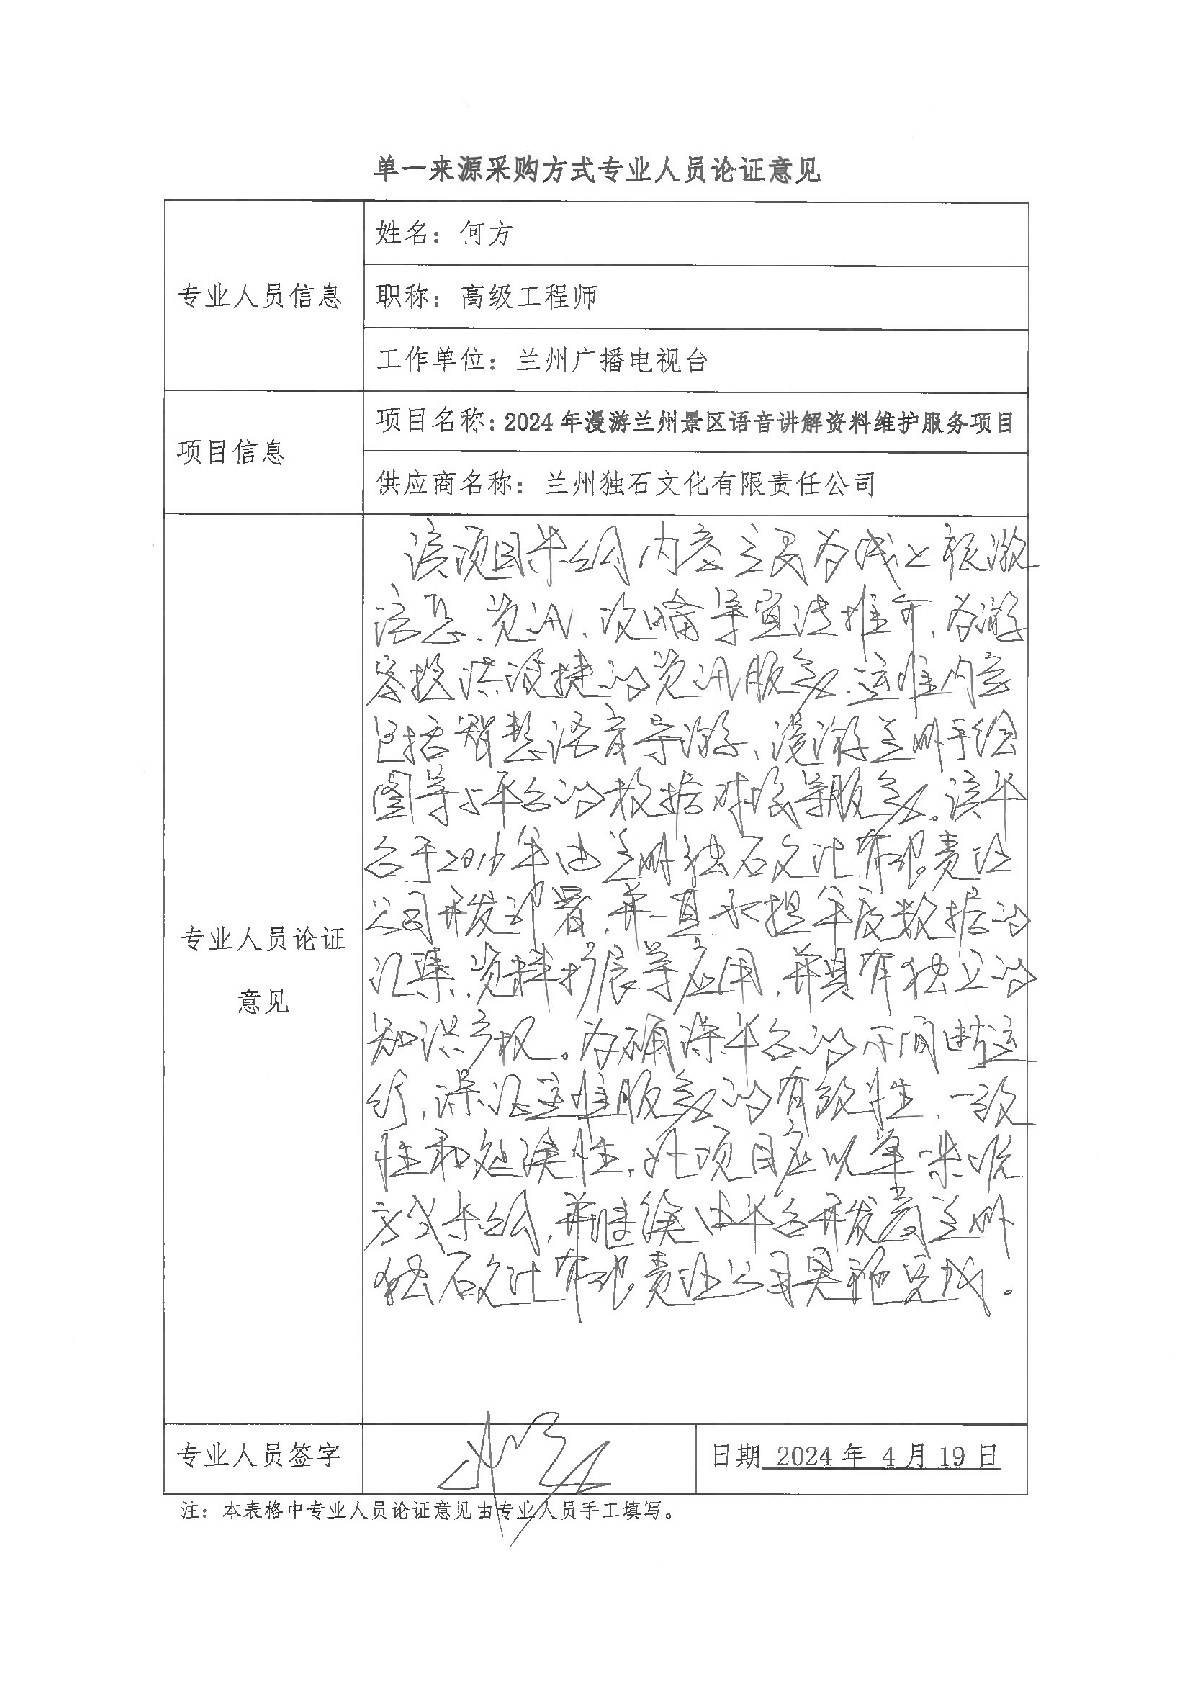 单一来源采购方式专业人员论证意见
专业人员信息
姓名：何方
职称：高级工程师
工作单位：兰州广播电视台
项目信息
项目名称：2024年漫游兰州景区语音讲解资料维护服务项目
供应商名称：兰州独石文化有限责任公司
专业人员论证
意见
该项目采购内容主要为线上旅游
信息、资讯、攻略等宣传推介，为游
客提供便捷的资讯服务。运维内容
包括智慧语音导游、漫游兰州手绘
图等与平台的数据对接等服务。该平
台于2016年由兰州独石文化有限责任
公司开发部署，并一直承担年度数据的
汇集、资料扩展等应用，并具有独立的
知识产权。为确保平台的不间断运
行，保证运维服务的有效性、一致
性和延续性，此项目应以单一来源
方式采购，并继续由平台开发商兰州
独石文化有限责任公司实施完成。
专业人员签字
日期 2024 年 4 月 19 日
注：本表格中专业人员论证意见由专业人员手工填写。